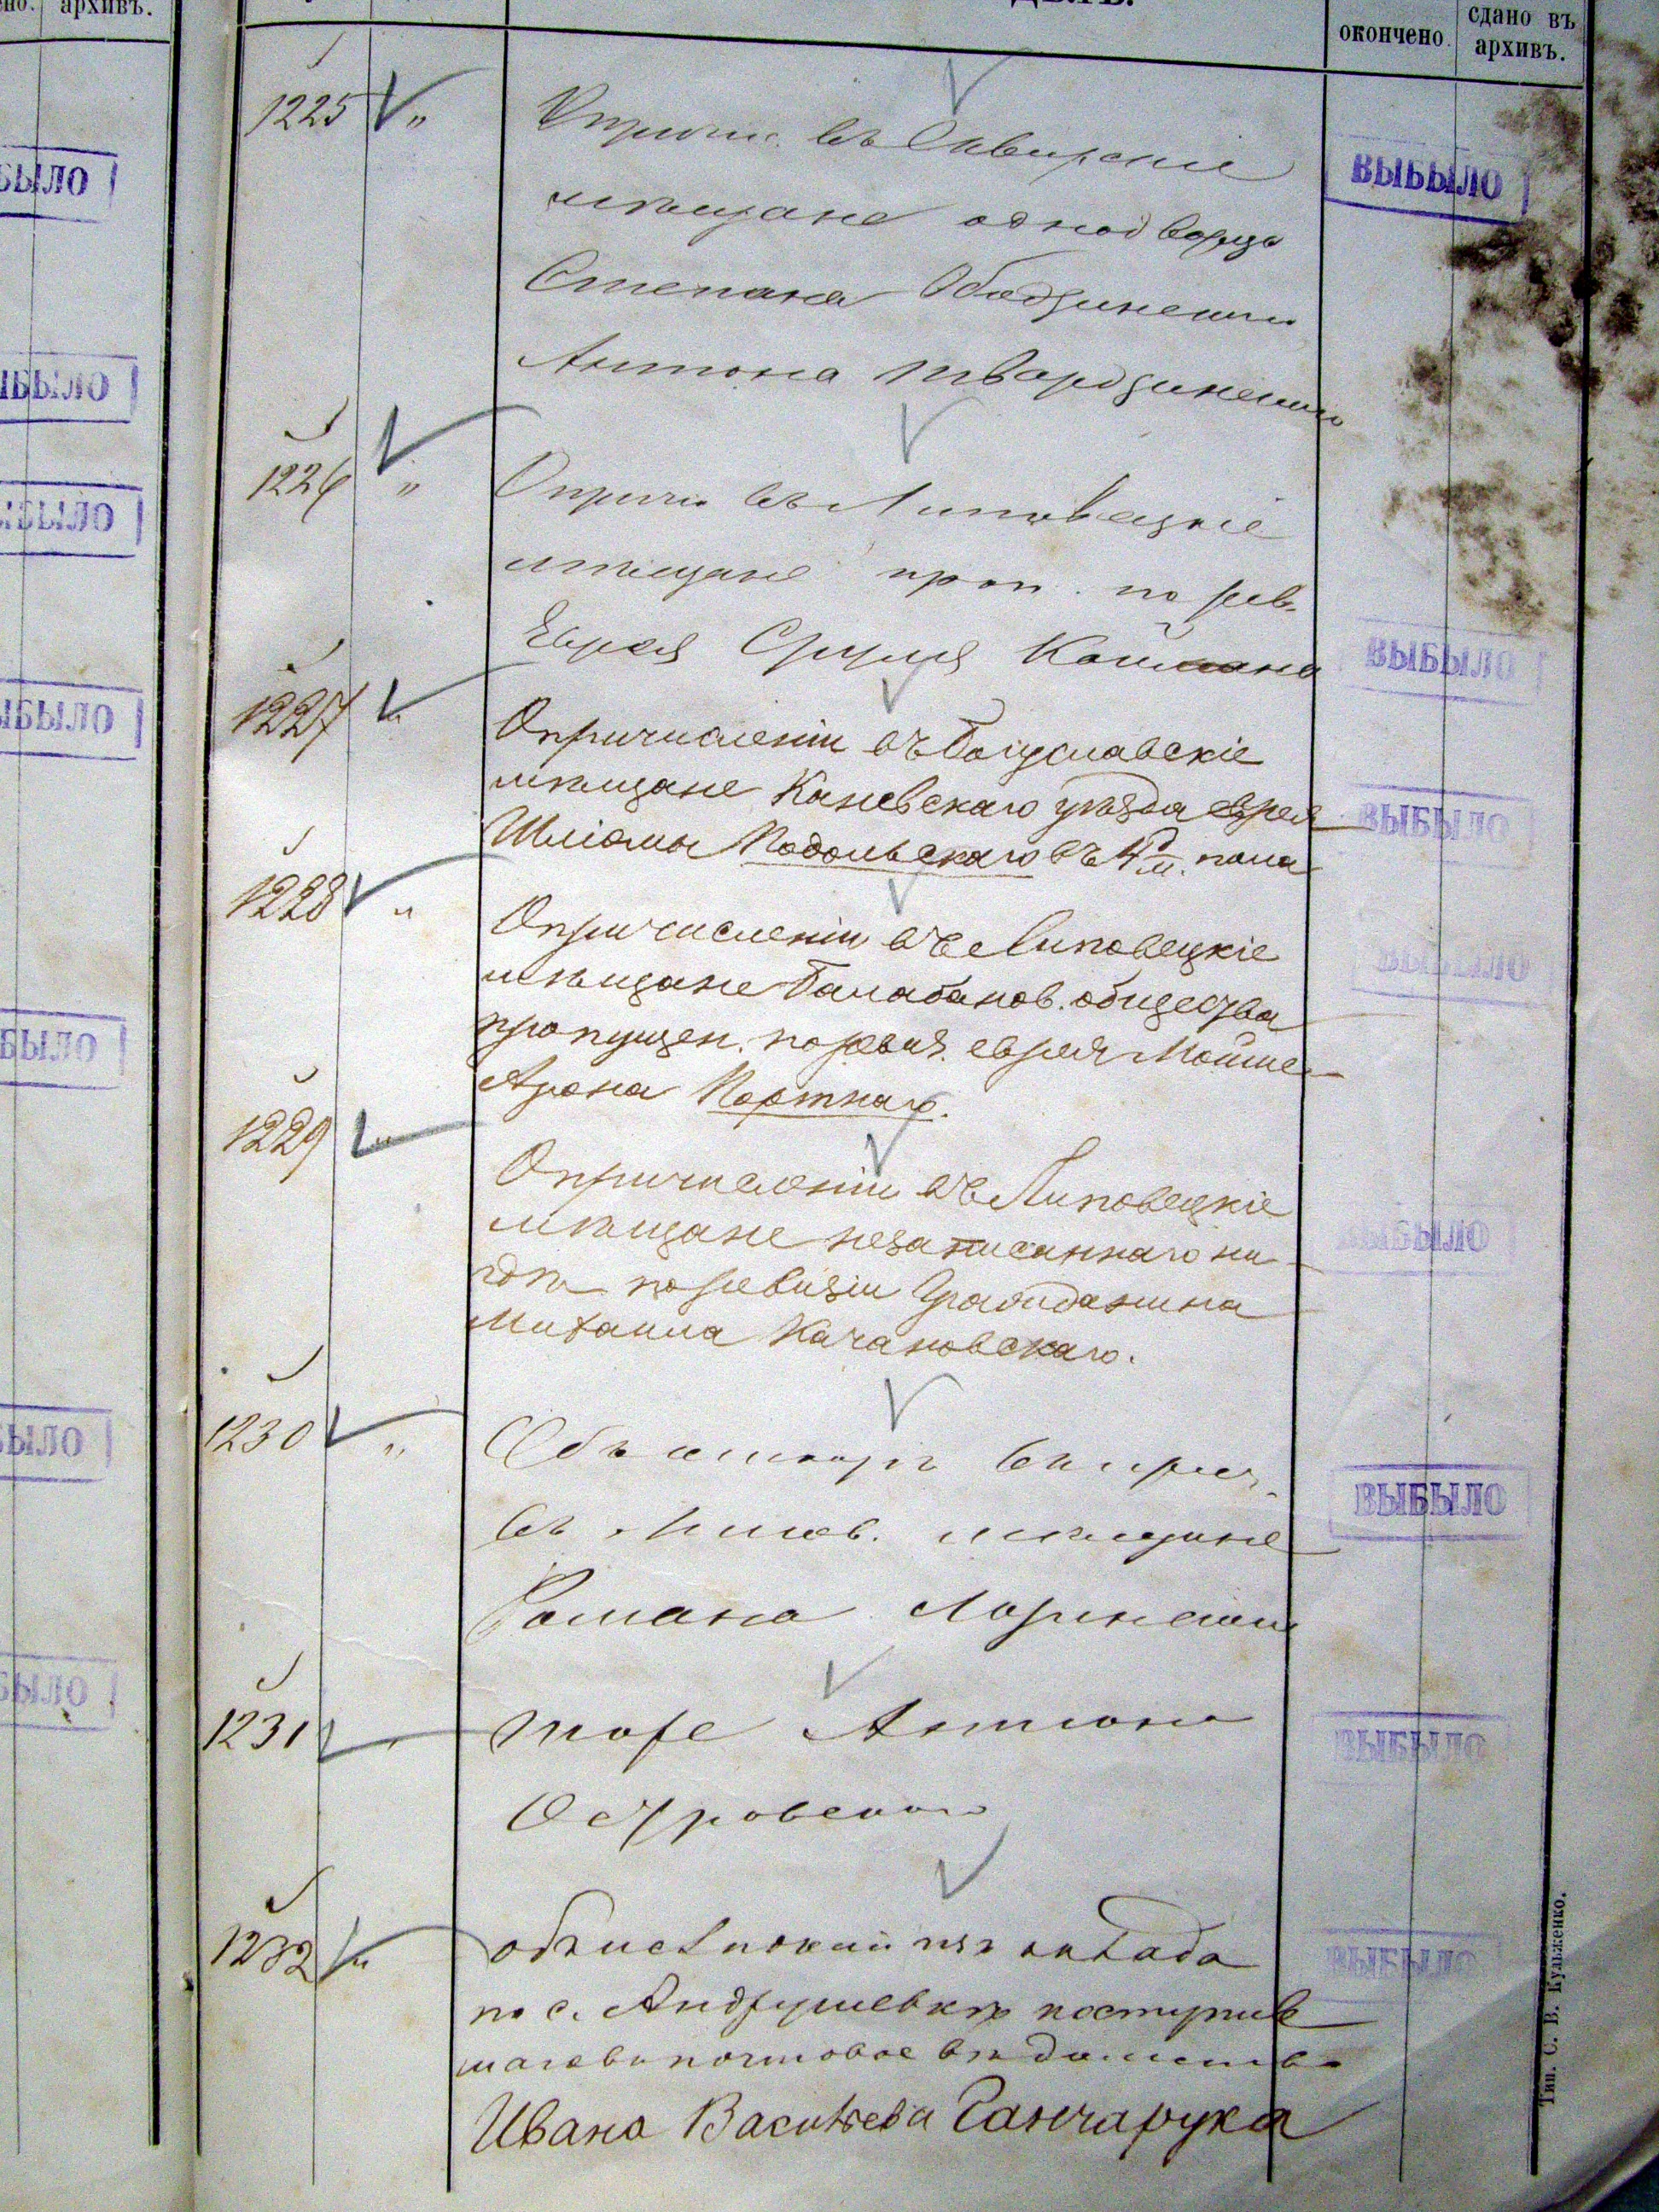 архивъ.
ДѢЛЪ.
окончено.
сдано въ
архивъ.
1225
О причис. въ Сквирскіе
мѣщане однодворца
Степана
Антона Твардзинскаго
ВЫБЫЛО
1226
О прич. въ Липовецкіе
мѣщане проп. по рев.
Еврея Сруля
ВЫБЫЛО
1227
О причисленіи въ Богуславскіе
мѣщане Каневскаго уѣзда еврея
Шліомы Подольскаго въ 4
ВЫБЫЛО
1228
О причисленіи въ Липовецкіе
мѣщане Балабанов. общества
пропущен. по ревиз. еврея Мошие-
Арона Портнаго.
ВЫБЫЛО
1229
О причисленіи въ Липовецкіе
мѣщане незаписаннаго ни-
гдѣ по ревизіи Гражданина
Михаила Качановскаго.
ВЫБЫЛО
1230
въ Липов. мѣщане
Романа
ВЫБЫЛО
1231
тоже Антона
Островскаго
ВЫБЫЛО
1232
объ исключеніи изъ оклада
по с. Андрушевкѣ поступив
шаго въ почтовое вѣдомство
Ивана Васильева Ганчарука
ВЫБЫЛО
Тип. С. В. Кульженко.